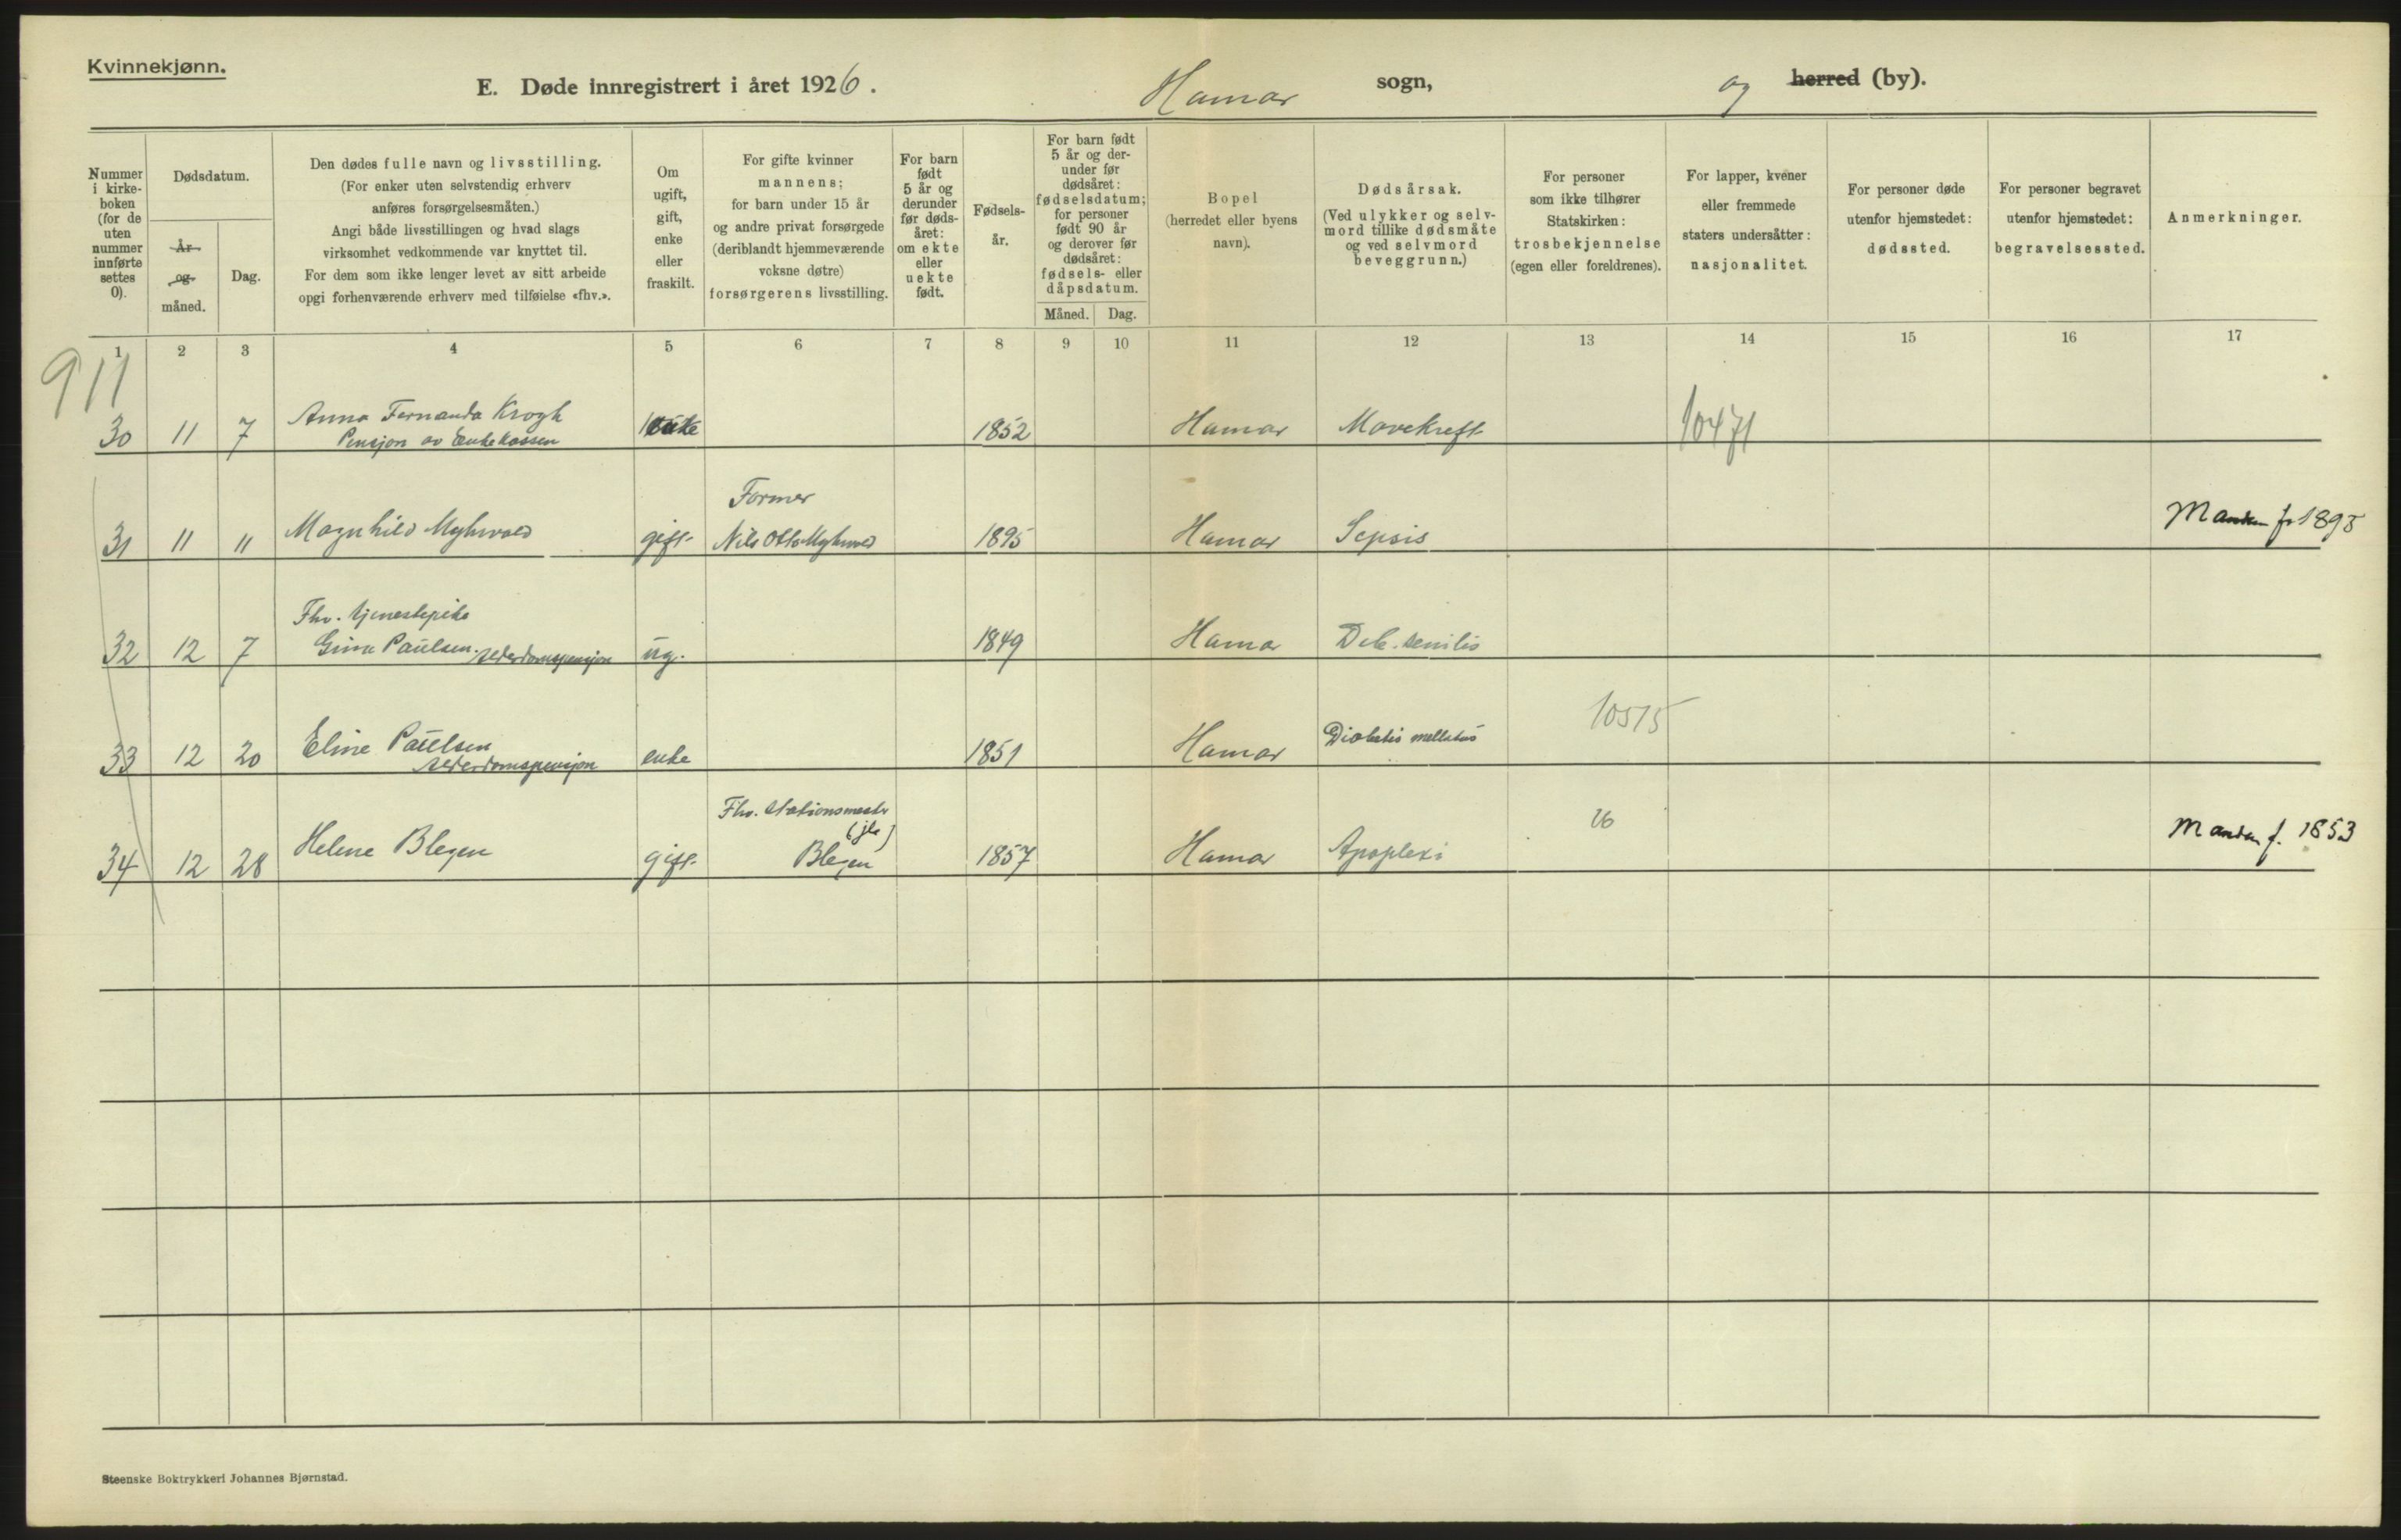 Kvinnekjønn.
E. Døde innregistrert i året 1926. Hamar sogn, og herred (by).
Nummer i kirke- boken (for de uten nummer innførte settes 0).
Dødsdatum.
År og måned.
Dag.
Den dødes fulle navn og livsstilling.
(For enker uten selvstendig erhverv
anføres forsørgelsesmåten.)
Angi både livsstillingen og hvad slags
virksomhet vedkommende var knyttet til.
For dem som ikke lenger levet av sitt arbeide
opgi forhenværende erhverv med tilføielse «fhv.».
Om ugift, gift, enke eller fraskilt.
For gifte kvinner
mannens;
for barn under 15 år
og andre privat forsørgede
(deriblandt hjemmeværende
voksne døtre)
forsørgerens livsstilling.
For barn født 5 år og derunder før døds- året: om ekte eller uekte født.
Fødsels- år.
For barn født
5 år og der-
under før
dødsåret:
fødselsdatum;
for personer
født 90 år
og derover før
dødsåret:
fødsels- eller
dåpsdatum.
Måned. Dag.
Bopel
(herredet eller byens
navn).
Dødsårsak.
(Ved ulykker og selv-
mord tillike dødsmåte
og ved selvmord
beveggrunn.)
For personer
som ikke tilhører
Statskirken:
trosbekjennelse
(egen eller foreldrenes).
For lapper, kvener
eller fremmede
staters undersåtter:
nasjonalitet.
For personer døde
utenfor hjemstedet:
dødssted.
For personer begravet
utenfor hjemstedet:
begravelsessted.
Anmerkninger.
1 2 3 4 5 6 7 8 9 10 11 12 13 14 15 16 17
911
30 11 7 Anna Fernanda Krogh enke 1852 Hamar Mavekreft 10471
Pensjon av Enkekassen
Former
31 11 11 Magnhild Myhrvold gift Nils Otto Myhrvold 1895 Hamar Sepsis Manden f. 1895
Fhv. tjenestepike
32 12 7 Gina Paulsen. alderdomspensjon ug. 1849 Hamar Deb. senilis
10515
33 12 20 Eline Paulsen enke 1851 Hamar Diabetis mellitus
alderdomspensjon
Fhv. Stationsmester
(jb)
34 12 28 Helene Blegen gift Blegen 1857 Hamar Apoplexi 16 Manden f. 1853
Steenske Boktrykkeri Johannes Bjørnstad.